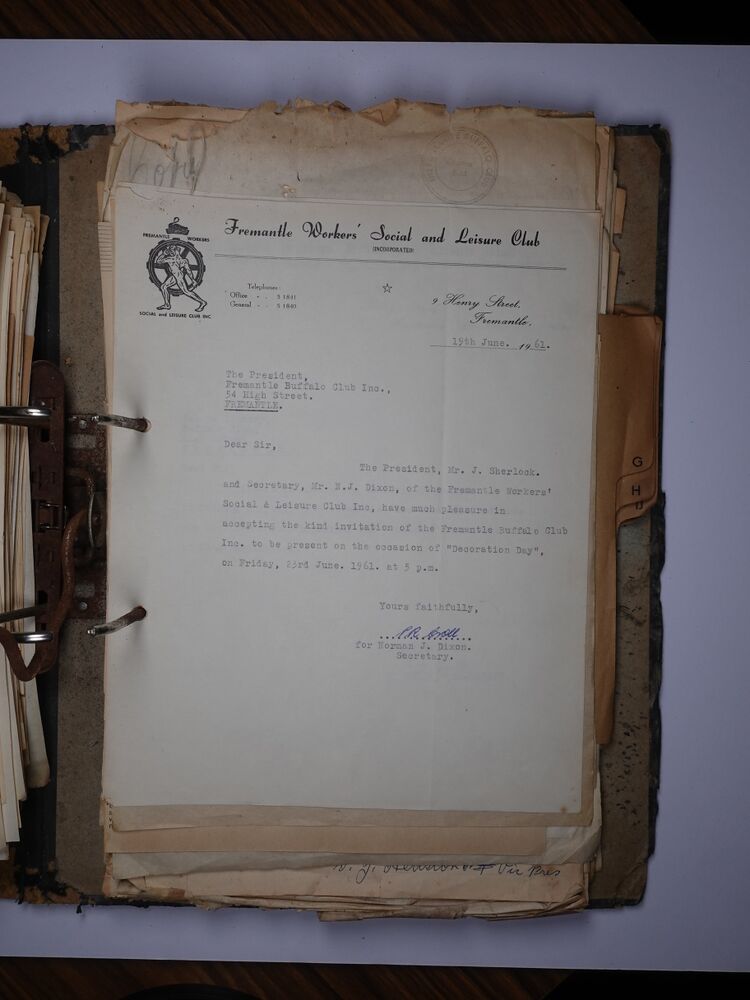 FREMANTLE WORKERS
SOCIAL and LEISURE CLUB INC
Fremantle Workers' Social and Leisure Club
(INCORPORATED)
Telephones:
Office - - 5 1841
General - - 5 1840
9 Henry Street,
Fremantle,
19th June. 1961.
The President,
Fremantle Buffalo Club Inc.,
54 High Street.
FREMANTLE.
Dear Sir,
The President, Mr. J. Sherlock.
and Secretary, Mr. N.J. Dixon, of the Fremantle Workers'
Social & Leisure Club Inc, have much pleasure in
accepting the kind invitation of the Fremantle Buffalo Club
Inc. to be present on the occasion of "Decoration Day",
on Friday, 23rd June. 1961. at 5 p.m.
Yours faithfully,
for Norman J. Dixon.
Secretary.
G
H
IJ
Vic Pres